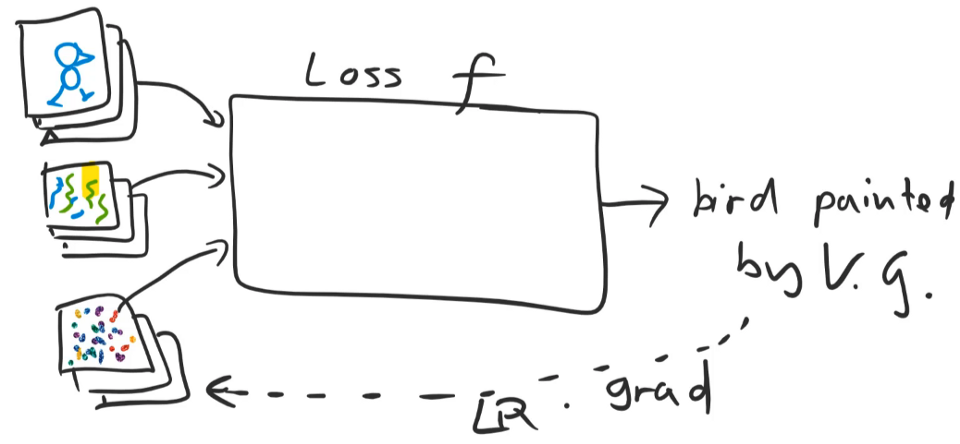 Loss f
bird painted
by V. G.
LR . grad